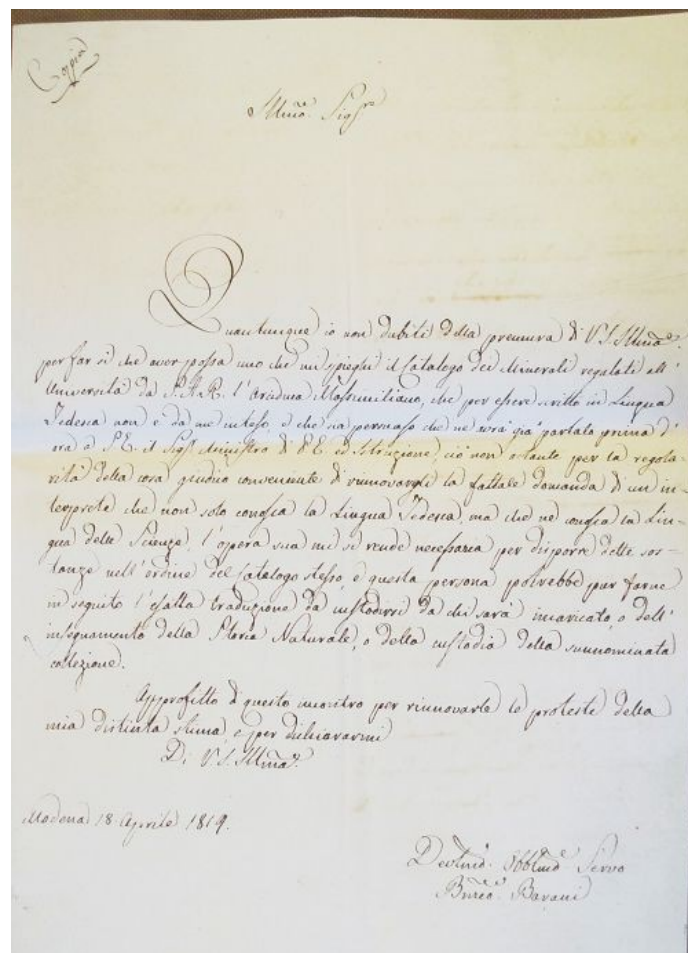 Copia
Illmo. Sigre
Quantunque io non dubiti della premura di V. S. Illma.
per far sì che aver possa uno che mi spieghi il Catalogo dei Minerali regalati all'
Università da S. A. R. l'Arciduca Massimiliano, che per essere scritto in Lingua
Tedesca non è da me inteso, e che sia persuaso che ne avrà già parlato prima d'
ora a S. E. il Sigr. Ministro di P. E. ed Istruzione, ciò non ostante per la regola-
rità della cosa giudico conveniente di rinnovargli la fattale domanda di un in-
terprete che non solo conosca la Lingua Tedesca, ma che ne conosca la Lin-
gua delle Scienze, l'opera sua mi si rende necessaria per disporre dette sos-
tanze nell'ordine del Catalogo stesso, e questa persona potrebbe pur farne
in seguito l'esatta traduzione da custodirsi da chi sarà incaricato, o dell'
insegnamento della Storia Naturale, o della custodia della sunnominata
collezione.
Approfitto di questo incontro per rinnovarle le proteste della
mia distinta stima, e per dichiararmi
Di V. S. Illma.
Modena 18. Aprile 1819.
Devmo. Obblmo. Servo
Barani